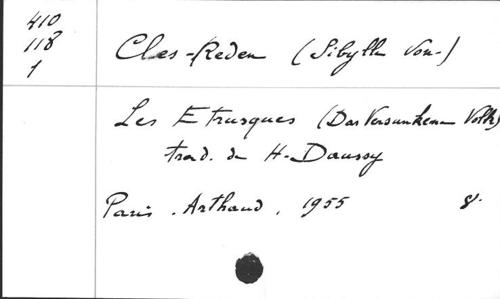 410
118
1
Cles-Reden (Sibylle von-)
Les Etrusques (Das Versunkene Volk)
trad. de H. Daussy
Paris. Arthaud, 1955 8°